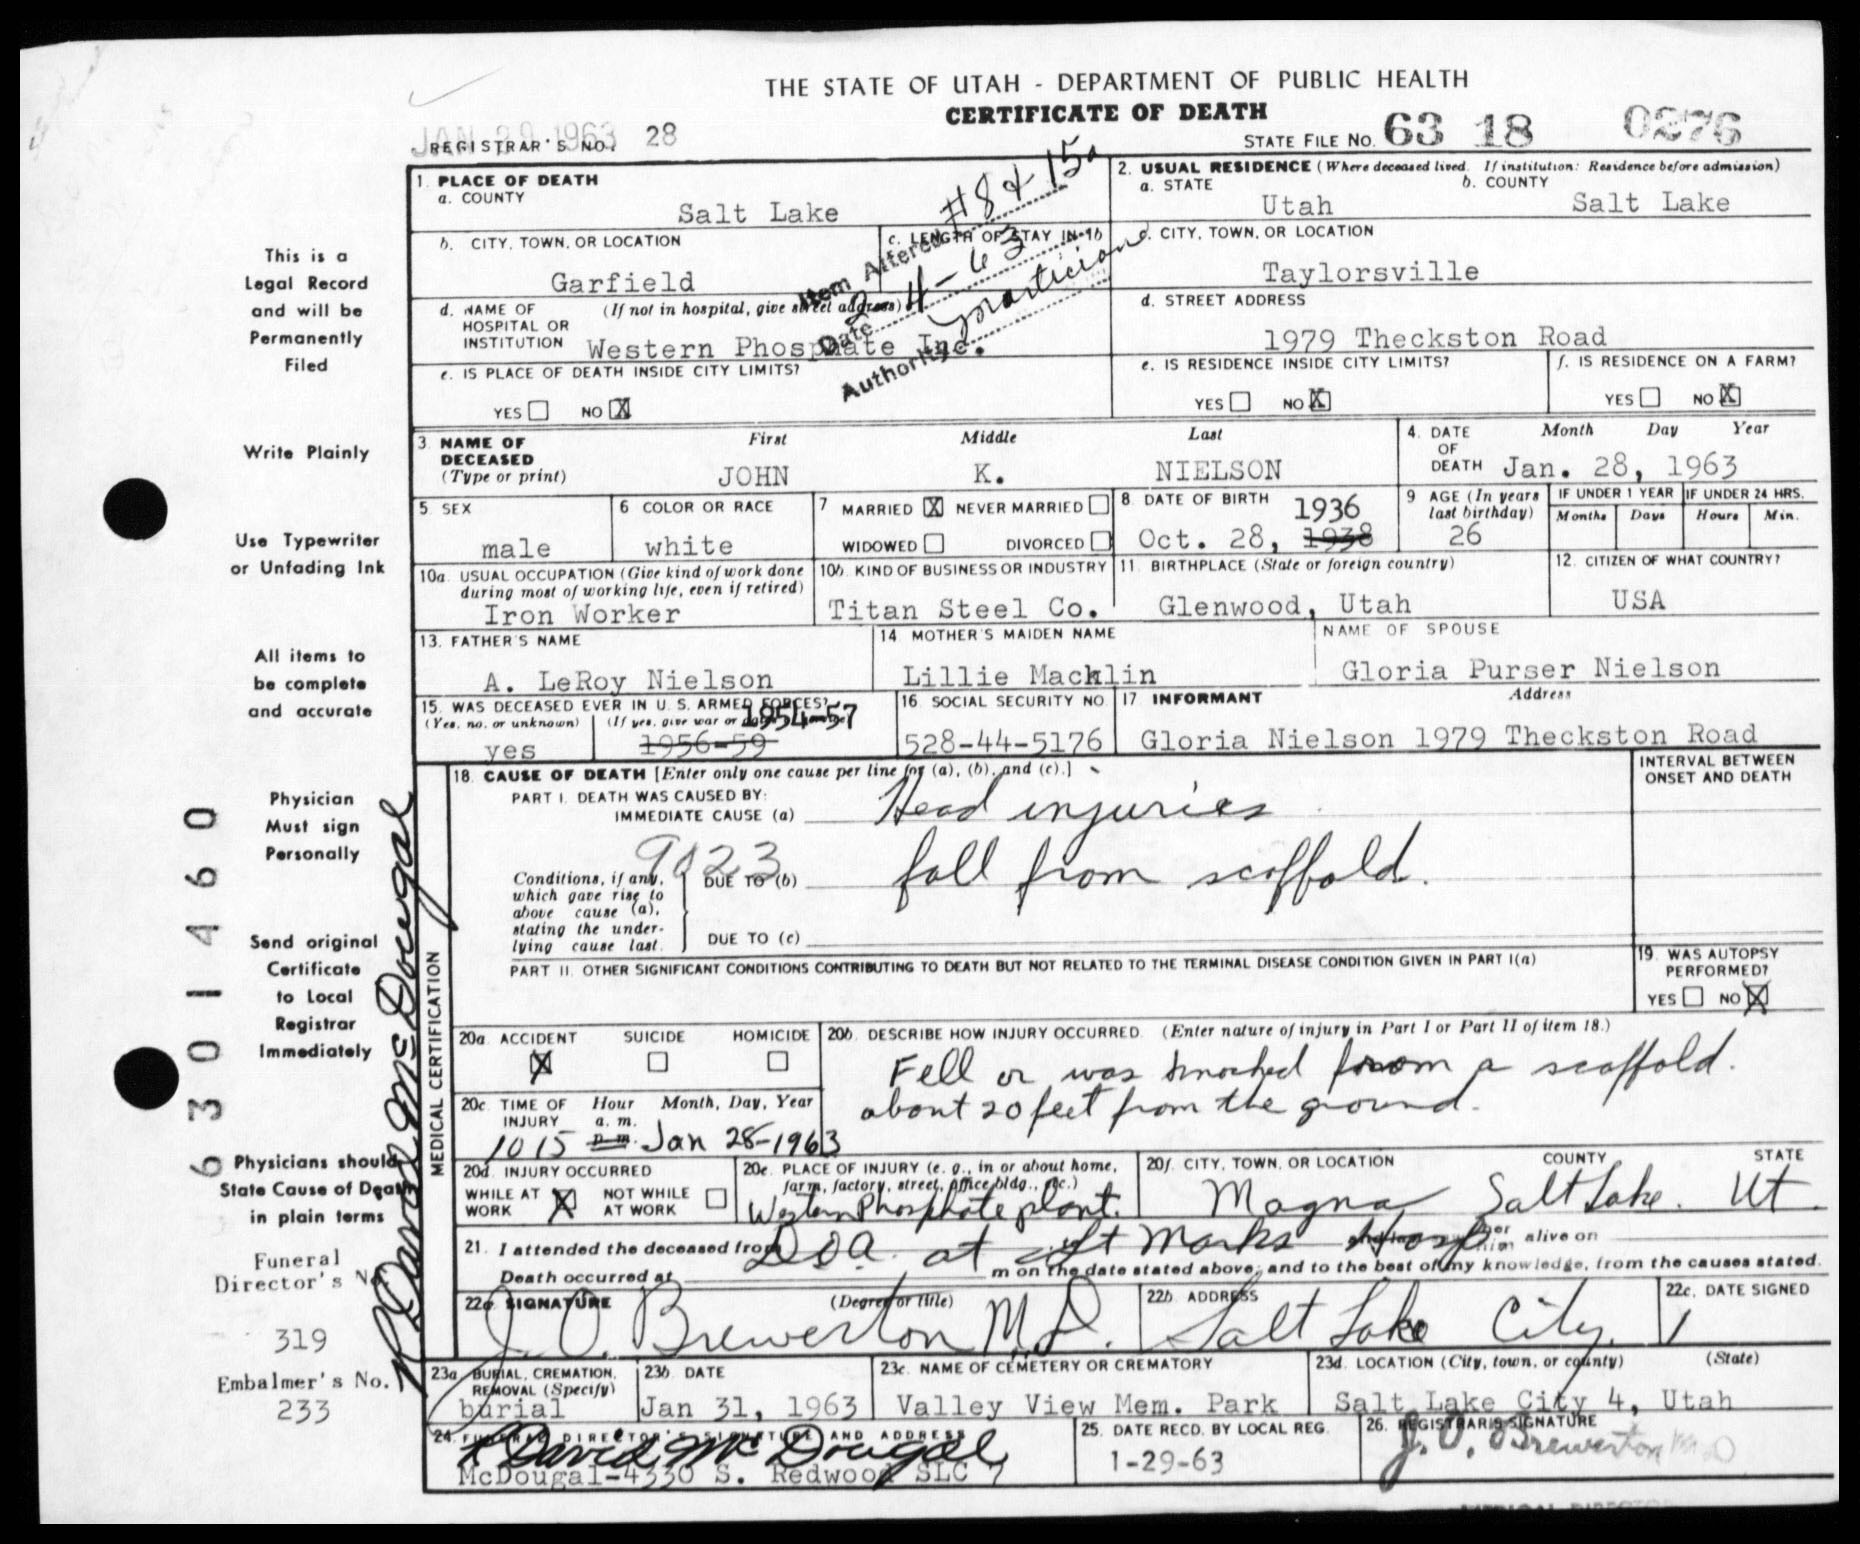 THE STATE OF UTAH - DEPARTMENT OF PUBLIC HEALTH
CERTIFICATE OF DEATH
JAN 29 1963
REGISTRAR'S NO. 28
STATE FILE NO. 63 18 0276
1. PLACE OF DEATH
a. COUNTY
Salt Lake
b. CITY, TOWN, OR LOCATION
Garfield
c. LENGTH OF STAY IN 1b
d. NAME OF HOSPITAL OR INSTITUTION (If not in hospital, give street address)
Western Phosphate Inc.
e. IS PLACE OF DEATH INSIDE CITY LIMITS?
YES NO X
Item Altered #8 & 15a
Date 2-4-63
Authority mortician
2. USUAL RESIDENCE (Where deceased lived. If institution: Residence before admission)
a. STATE
Utah
b. COUNTY
Salt Lake
c. CITY, TOWN, OR LOCATION
Taylorsville
d. STREET ADDRESS
1979 Theckston Road
e. IS RESIDENCE INSIDE CITY LIMITS?
YES NO X
f. IS RESIDENCE ON A FARM?
YES NO X
3. NAME OF DECEASED (Type or print)
First Middle Last
JOHN K. NIELSON
4. DATE OF DEATH
Month Day Year
Jan. 28, 1963
5. SEX
male
6 COLOR OR RACE
white
7 MARRIED X NEVER MARRIED
WIDOWED DIVORCED
8 DATE OF BIRTH
1936
Oct. 28, 1938
9 AGE (In years last birthday)
26
IF UNDER 1 YEAR
Months Days
IF UNDER 24 HRS.
Hours Min.
10a. USUAL OCCUPATION (Give kind of work done during most of working life, even if retired)
Iron Worker
10b. KIND OF BUSINESS OR INDUSTRY
Titan Steel Co.
11. BIRTHPLACE (State or foreign country)
Glenwood, Utah
12. CITIZEN OF WHAT COUNTRY?
USA
13. FATHER'S NAME
A. LeRoy Nielson
14 MOTHER'S MAIDEN NAME
Lillie Macklin
NAME OF SPOUSE
Gloria Purser Nielson
15. WAS DECEASED EVER IN U. S. ARMED FORCES?
(Yes, no, or unknown) (If yes, give war or dates
1954-57
yes 1956-59
16. SOCIAL SECURITY NO.
528-44-5176
17 INFORMANT Address
Gloria Nielson 1979 Theckston Road
MEDICAL CERTIFICATION
18. CAUSE OF DEATH [Enter only one cause per line for (a), (b), and (c).]
INTERVAL BETWEEN ONSET AND DEATH
PART I. DEATH WAS CAUSED BY:
IMMEDIATE CAUSE (a) Head injuries
9023
Conditions, if any, which gave rise to above cause (a), stating the underlying cause last.
DUE TO (b) fall from scaffold.
DUE TO (c)
PART II. OTHER SIGNIFICANT CONDITIONS CONTRIBUTING TO DEATH BUT NOT RELATED TO THE TERMINAL DISEASE CONDITION GIVEN IN PART I(a)
19. WAS AUTOPSY PERFORMED?
YES NO X
20a. ACCIDENT SUICIDE HOMICIDE
X
20b. DESCRIBE HOW INJURY OCCURRED. (Enter nature of injury in Part I or Part II of item 18.)
Fell or was knocked from a scaffold.
about 20 feet from the ground.
20c. TIME OF INJURY Hour Month, Day, Year
a. m.
p. m.
1015 Jan 28-1963
20d. INJURY OCCURRED
WHILE AT WORK X NOT WHILE AT WORK
20e. PLACE OF INJURY (e. g., in or about home, farm, factory, street, office bldg., etc.)
Western Phosphate plant.
20f. CITY, TOWN, OR LOCATION COUNTY STATE
Magna Salt Lake. Ut.
21. I attended the deceased from DOA. at St Marks Hosp her him alive on
Death occurred at m on the date stated above; and to the best of my knowledge, from the causes stated.
22a. SIGNATURE (Degree or title)
J. O. Brewerton M.D.
22b. ADDRESS
Salt Lake City.
22c. DATE SIGNED
1
23a. BURIAL, CREMATION, REMOVAL (Specify)
burial
23b. DATE
Jan 31, 1963
23c. NAME OF CEMETERY OR CREMATORY
Valley View Mem. Park
23d. LOCATION (City, town, or county) (State)
Salt Lake City 4, Utah
24. FUNERAL DIRECTOR'S SIGNATURE AND ADDRESS
R David McDougal
McDougal-4330 S. Redwood SLC 7
25. DATE RECD. BY LOCAL REG.
1-29-63
26. REGISTRAR'S SIGNATURE
J. O. Brewerton MD
MEDICAL DIRECTOR
This is a
Legal Record
and will be
Permanently
Filed
Write Plainly
Use Typewriter
or Unfading Ink
All items to
be complete
and accurate
Physician
Must sign
Personally
Send original
Certificate
to Local
Registrar
Immediately
Physicians should
State Cause of Death
in plain terms
Funeral
Director's No.
319
Embalmer's No.
233
6301460
R David McDougal